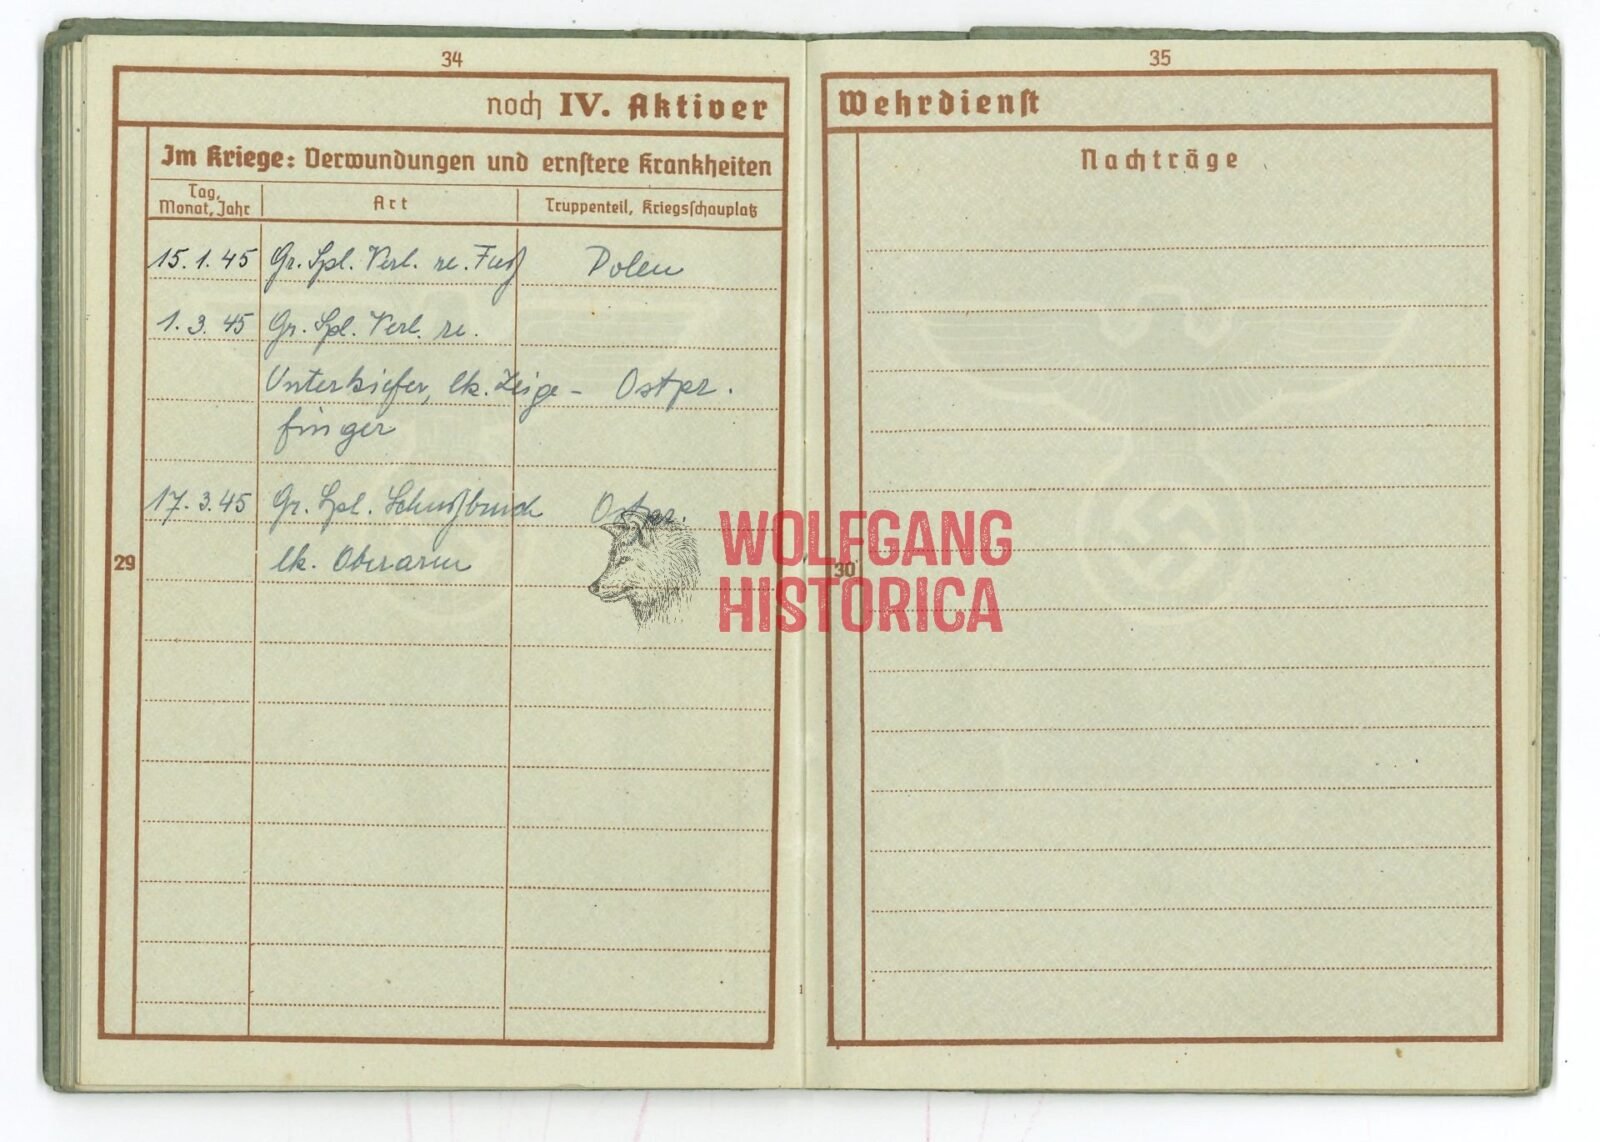 34
noch IV. Aktiver
Im Kriege: Verwundungen und ernstere Krankheiten
Tag, Monat, Jahr Art Truppenteil, Kriegsschauplatz
15.1.45 Gr. Spl. Verl. re. Fuß Polen
1.3.45 Gr. Spl. Verl. re.
Unterkiefer, lk. Zeige- Ostpr.
finger
17.3.45 Gr. Spl. Schußbruch Ostpr.
lk. Oberarm
29
35
Wehrdienst
Nachträge
30
WOLFGANG
HISTORICA